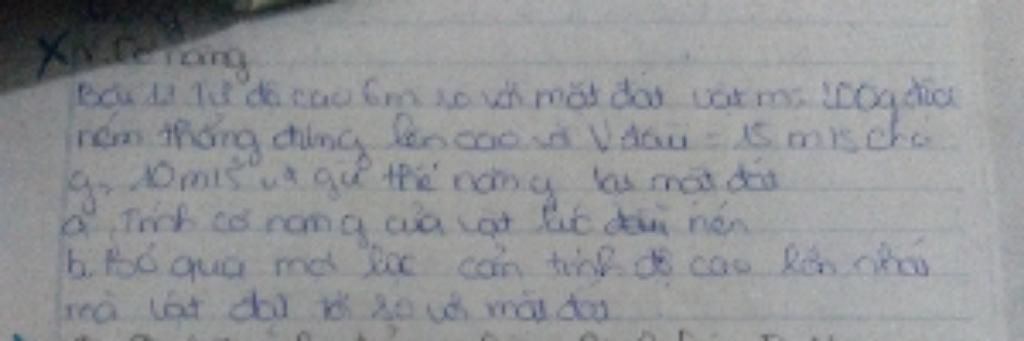 Cơ năng
Bài 1: Từ độ cao 6m so với mặt đất vật m= 200g được
ném thẳng đứng lên cao với V đầu = 15 m/s cho
g= 10m/s² và gự thế năng tại mặt đất
a, Tính cơ năng của vật lúc ném
b. Bỏ qua mọi lực cản tính độ cao lớn nhất
mà vật đạt tới so với mặt đất